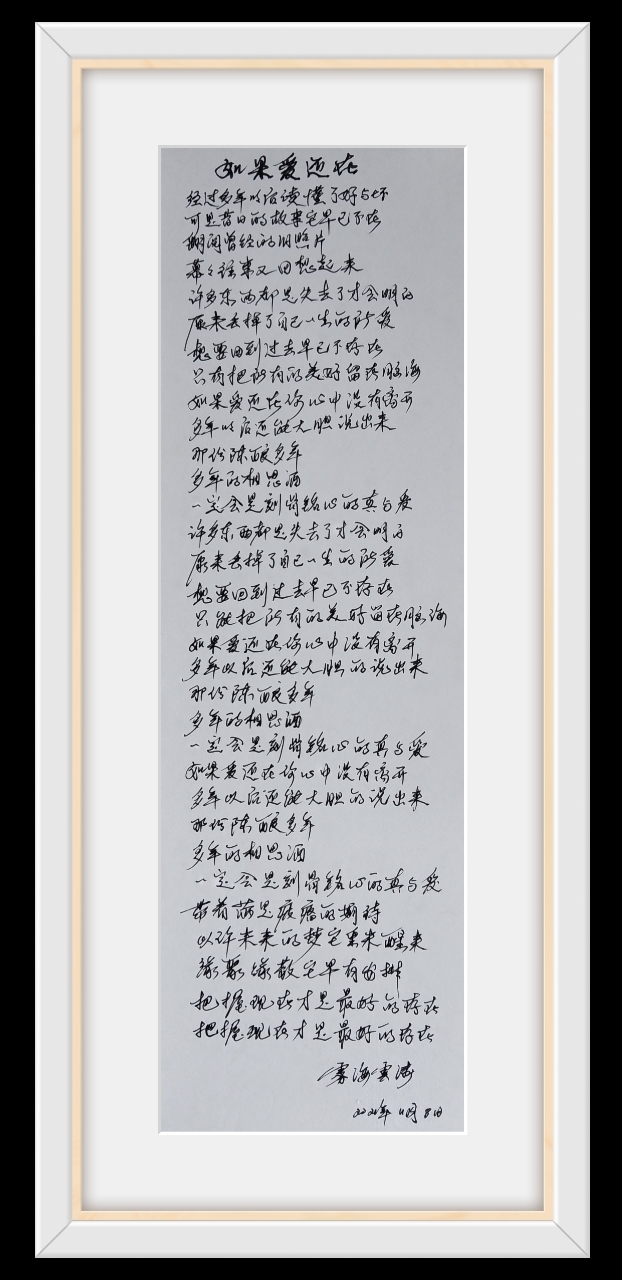 如果爱还在
经过多年以后读懂了好与坏
可是昔日的故事它早已不在
翻阅曾经的旧照片
幕々往事又回想起来
许多东西都是失去了才会明白
原来丢掉了自己一生的所爱
想要回到过去早已不存在
只有把所有的美好留在脑海
如果爱还在你心中没有离开
多年以后还能大胆说出来
那份陈酿多年
多年的相思酒
一定会是刻骨铭心的真与爱
许多东西都是失去了才会明白
原来丢掉了自己一生的所爱
想要回到过去早已不存在
只能把所有的美好留在脑海
如果爱还在你心中没有离开
多年以后还能大胆的说出来
那份陈酿多年
多年的相思酒
一定会是刻骨铭心的真与爱
如果爱还在你心中没有离开
多年以后还能大胆的说出来
那份陈酿多年
多年的相思酒
一定会是刻骨铭心的真与爱
带着满是疲惫的期待
也许未来的梦它要来醒来
缘聚缘散它早有安排
把握现在才是最好的存在
把握现在才是最好的存在
雾海云涛
11月8日